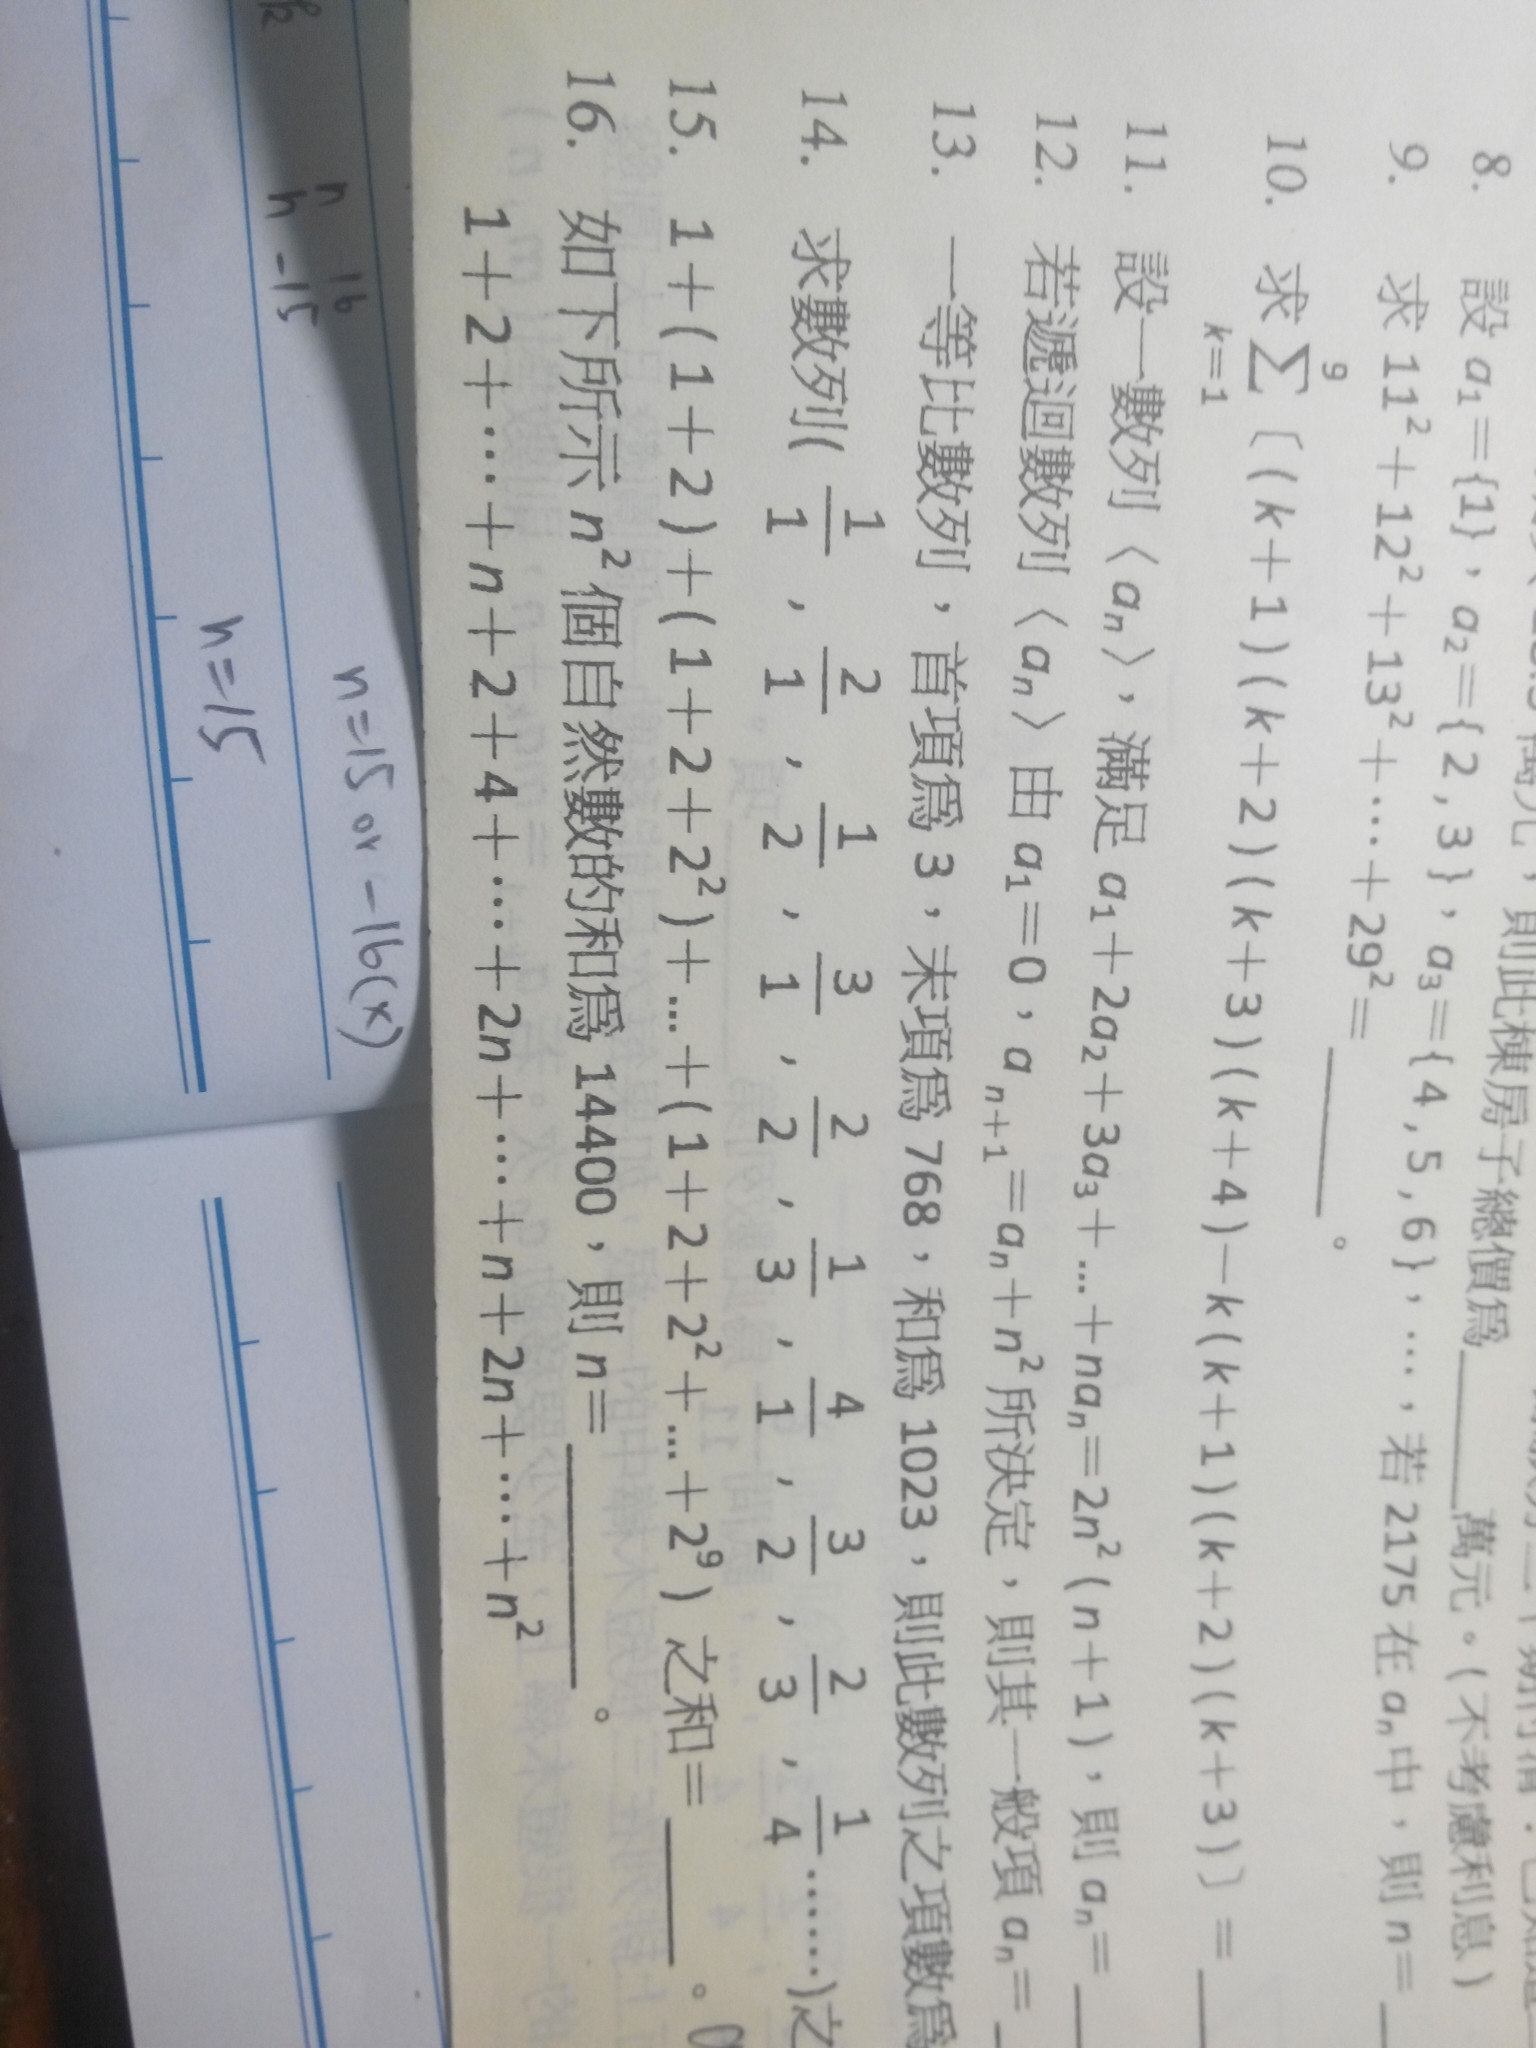 則此棟房子總價爲______萬元。(不考慮利息)
8. 設 a₁={1}, a₂={2,3}, a₃={4,5,6}, …, 若 2175 在 aₙ 中, 則 n=
9. 求 11²+12²+13²+⋯+29²=______。
10. 求 ∑_{k=1}^{9} 〔(k+1)(k+2)(k+3)(k+4)−k(k+1)(k+2)(k+3)〕=
11. 設一數列〈aₙ〉, 滿足 a₁+2a₂+3a₃+…+naₙ=2n²(n+1), 則 aₙ=
12. 若遞迴數列〈aₙ〉由 a₁=0, aₙ₊₁=aₙ+n² 所決定, 則其一般項 aₙ=
13. 一等比數列, 首項爲 3, 末項爲 768, 和爲 1023, 則此數列之項數爲
14. 求數列( 1/1 , 2/1 , 1/2 , 3/1 , 2/2 , 1/3 , 4/1 , 3/2 , 2/3 , 1/4 ……)之
15. 1+(1+2)+(1+2+2²)+…+(1+2+2²+…+2⁹) 之和=______。
16. 如下所示 n² 個自然數的和爲 14400, 則 n=______。
1+2+⋯+n+2+4+⋯+2n+⋯+n+2n+⋯+n²
n=15 or −16(x)
n 16
n −15
n=15